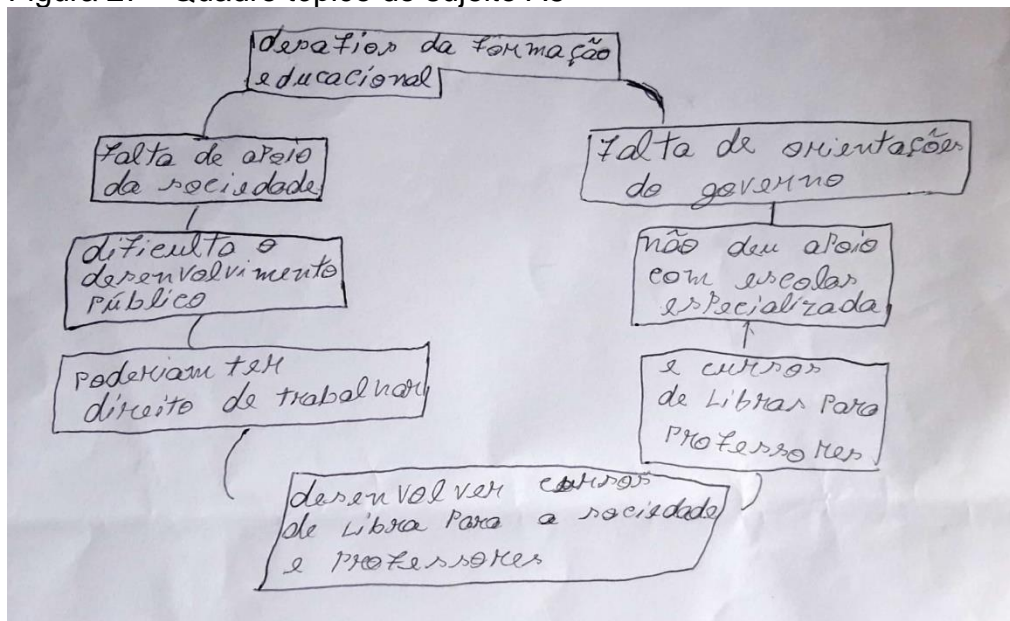 desafios da formação
educacional
Falta de apoio
da sociedade
dificulta o
desenvolvimento
Público
Poderiam ter
direito de trabalhar
Falta de orientações
do governo
não deu apoio
com escolas
especializada
e cursos
de Libras Para
Professores
desenvolver cursos
de Libra Para a sociedade
e Professores